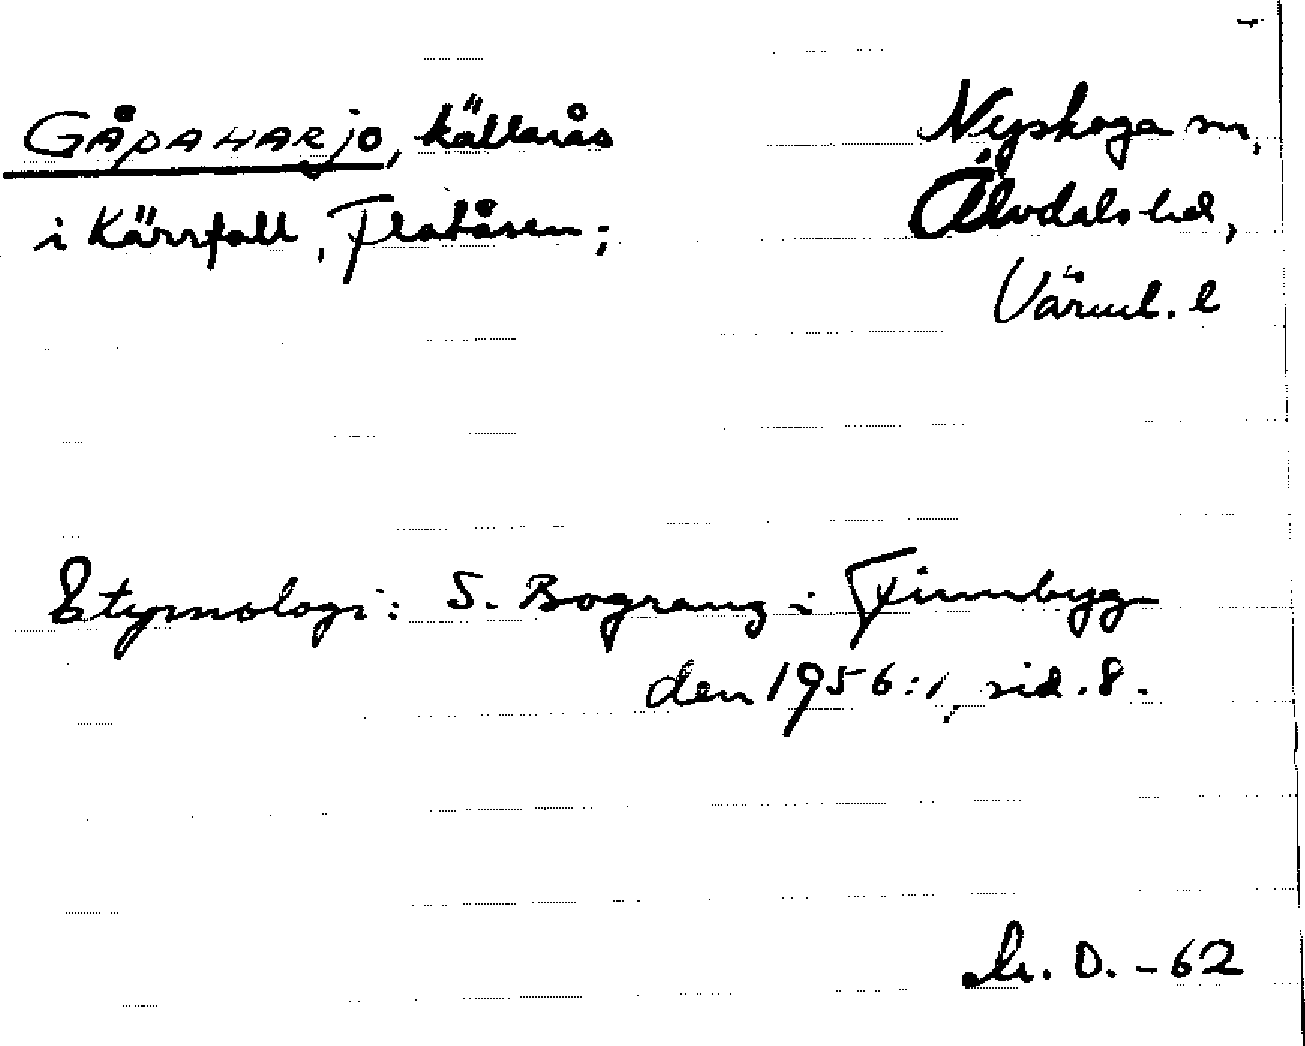 GÅPAHARJO, källarås
i Kärrfall, Flatåsen;
Nyskoga sn,
Älvdals hd,
Värml. l
Etymologi: S. Bograng i Finnbyg-
den 1956:1, sid. 8.
D. -62